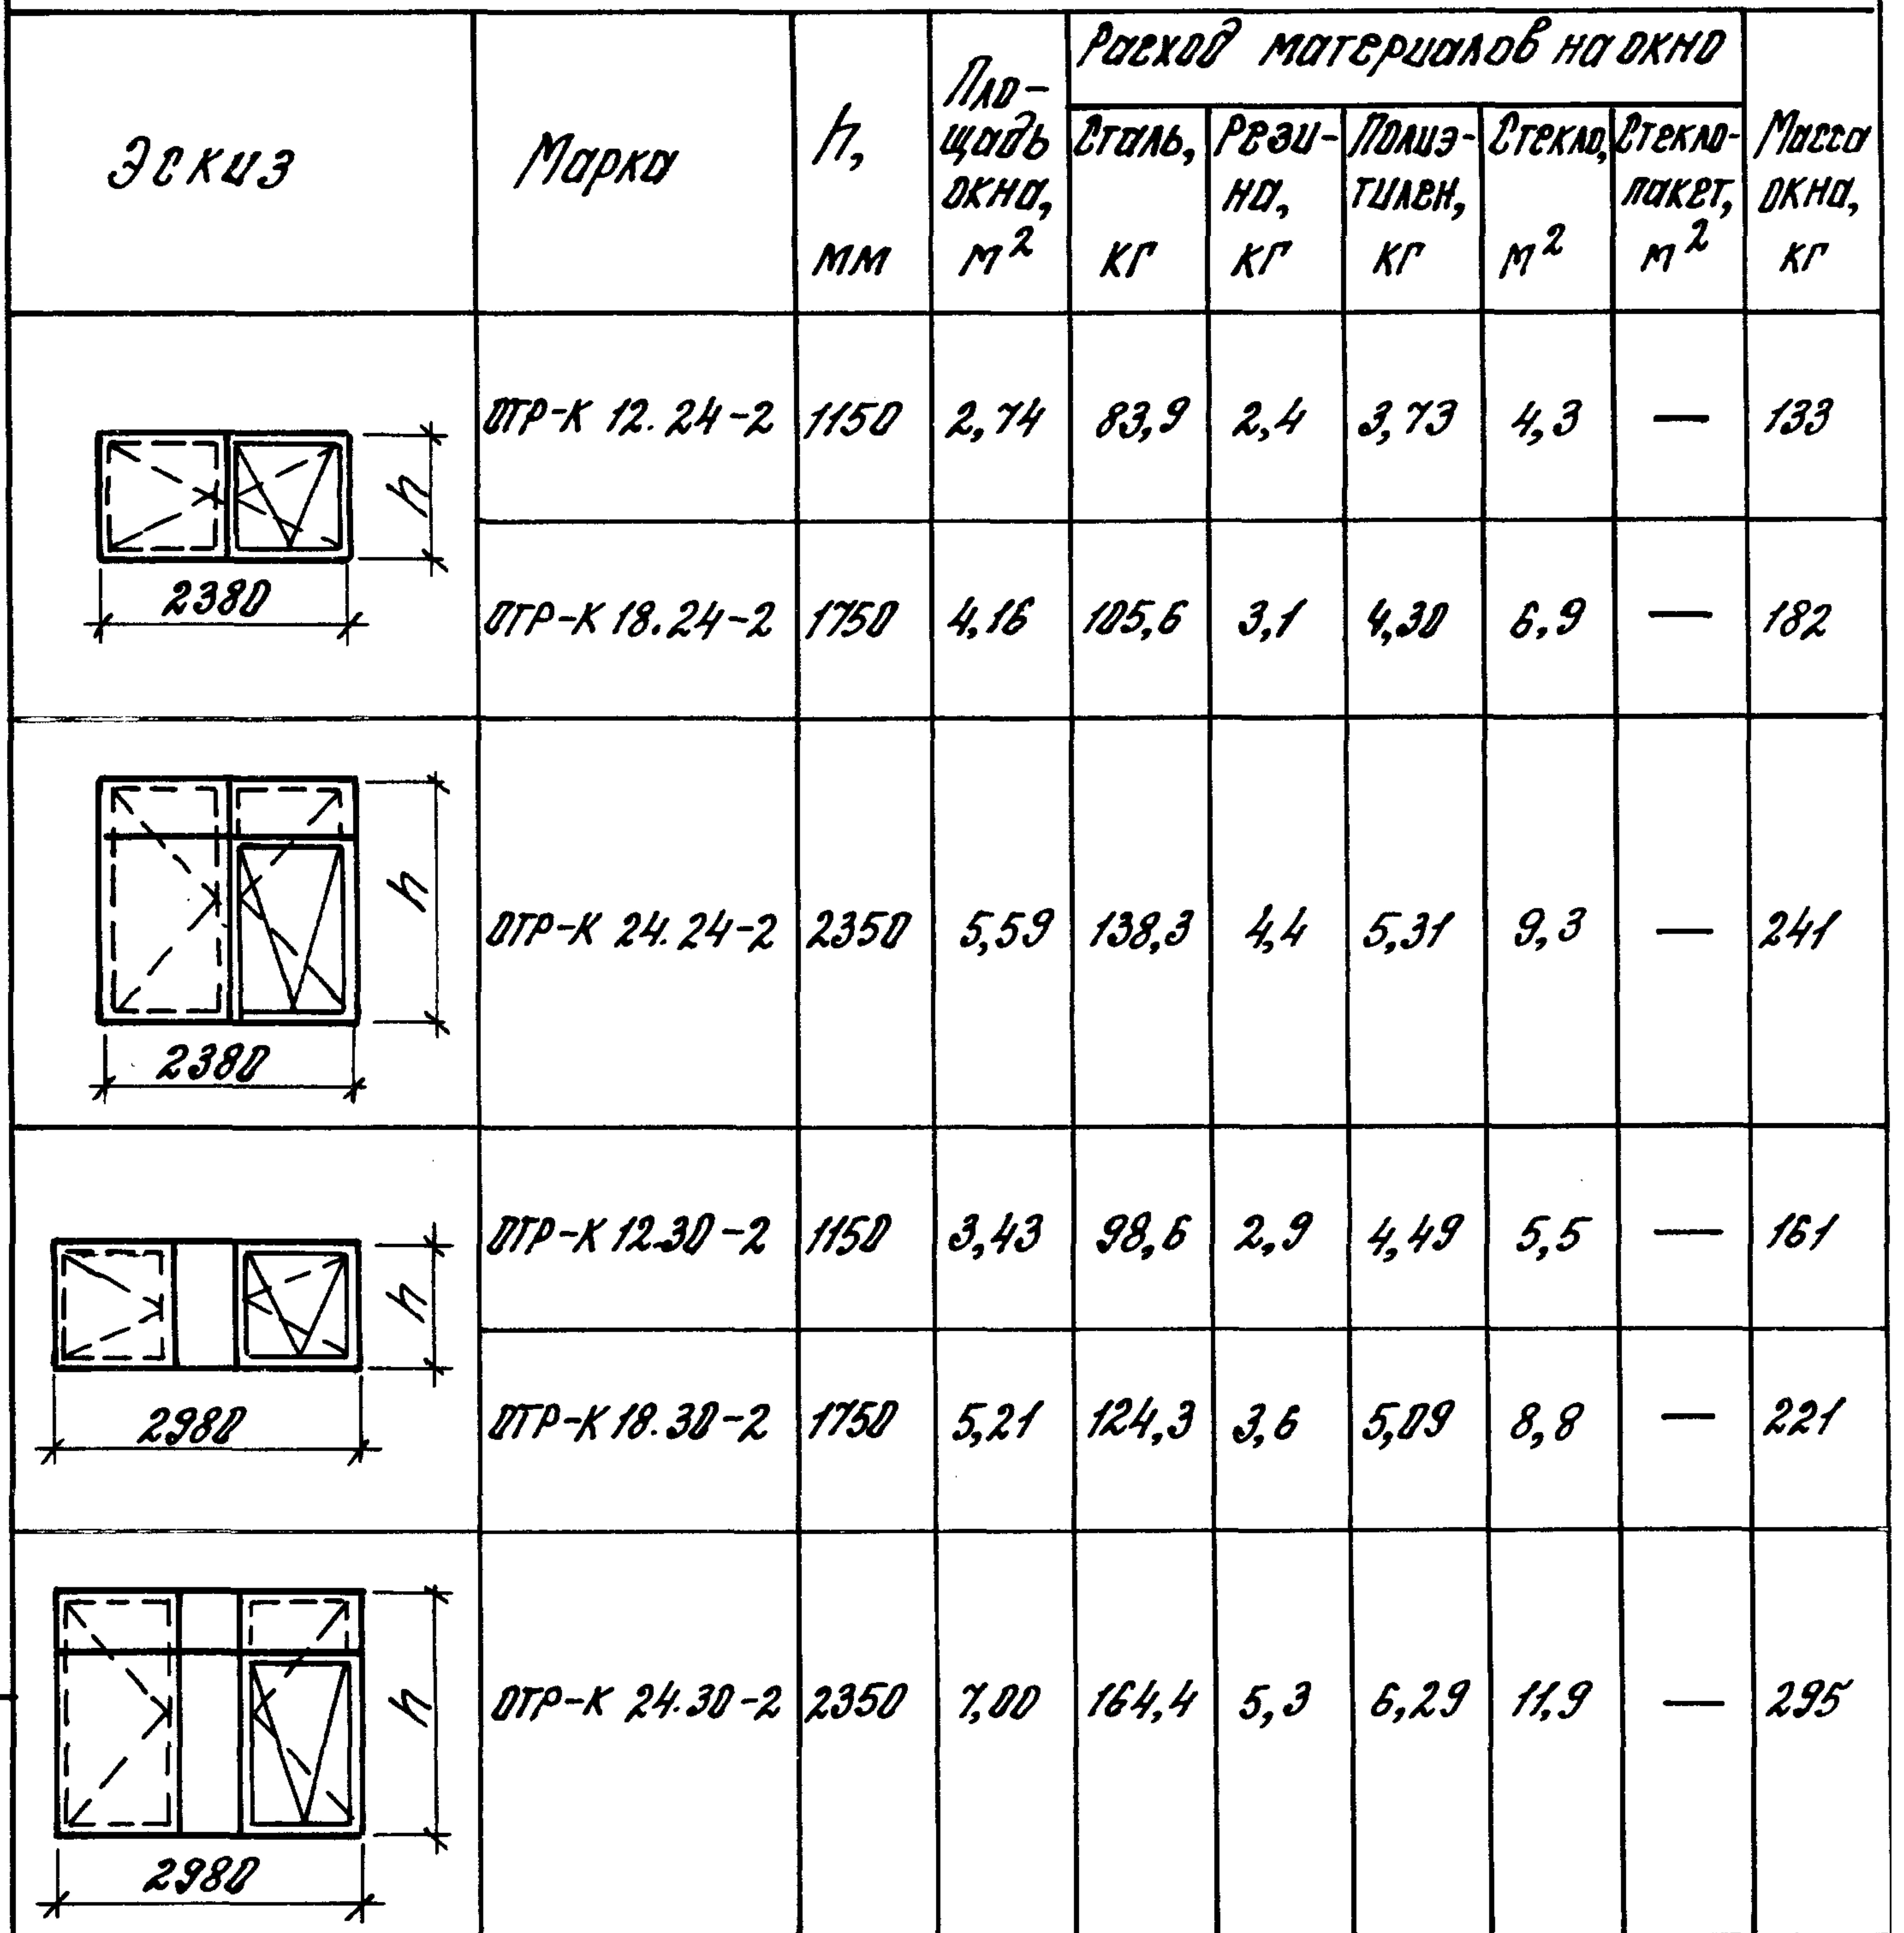 Эскиз
Марка
h,
мм
Пло-
щадь
окна,
м²
Расход материалов на окно
Сталь,
кг
Рези-
на,
кг
Полиэ-
тилен,
кг
Стекло,
м²
Стекло-
пакет,
м²
Масса
окна,
кг
h
2380
ОТР-К 12.24-2 1150 2,74 83,9 2,4 3,73 4,3 — 133
ОТР-К 18.24-2 1750 4,16 105,6 3,1 4,30 6,9 — 182
h
2380
ОТР-К 24.24-2 2350 5,59 138,3 4,4 5,31 9,3 — 241
h
2980
ОТР-К 12.30-2 1150 3,43 98,6 2,9 4,49 5,5 — 161
ОТР-К 18.30-2 1750 5,21 124,3 3,6 5,09 8,8 — 221
h
2980
ОТР-К 24.30-2 2350 7,00 164,4 5,3 6,29 11,9 — 295